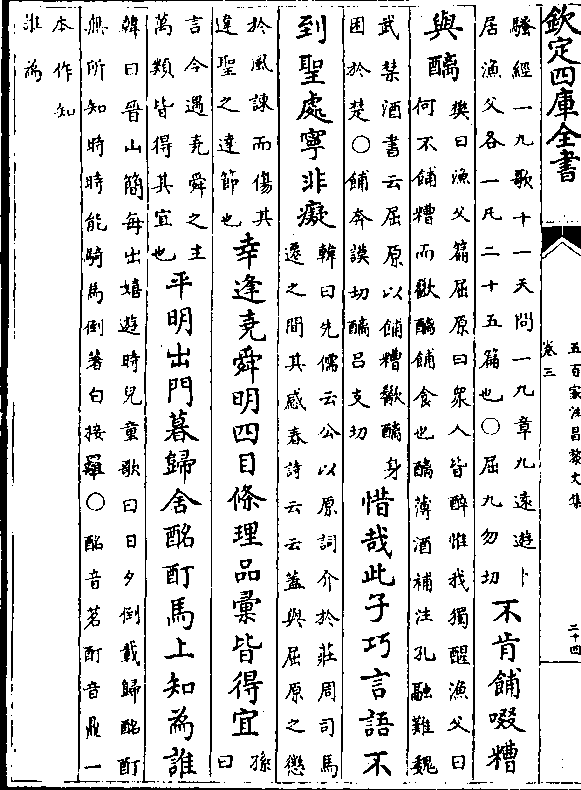 欽定四庫全書
五百家注昌黎文集
卷三
二十四
騷經一九歌十一天問一九章九遠遊卜
居漁父各一凡二十五篇也○屈九勿切
不肯餔啜糟
與醨
樊曰漁父篇屈原曰眾人皆醉惟我獨醒漁父曰
何不餔糟而歠醨餔食也醨薄酒補注孔融難魏
武禁酒書云屈原以餔糟歠醨身
困於楚○餔奔謨切醨呂支切
惜哉此子巧言語不
到聖處寧非癡
韓曰先儒云公以原詞介於莊周司馬
遷之間其感春詩云云蓋與屈原之懲
於風諫而傷其
違聖之達節也
幸逢堯舜明四目條理品彙皆得宜
孫
曰
言今遇堯舜之主
萬類皆得其宜也
平明出門暮歸舍酩酊馬上知為誰
韓曰晉山簡每出嬉遊時兒童歌曰日夕倒載歸酩酊
無所知時時能騎馬倒著白接䍦○酩音茗酊音鼎一
本作知
誰為